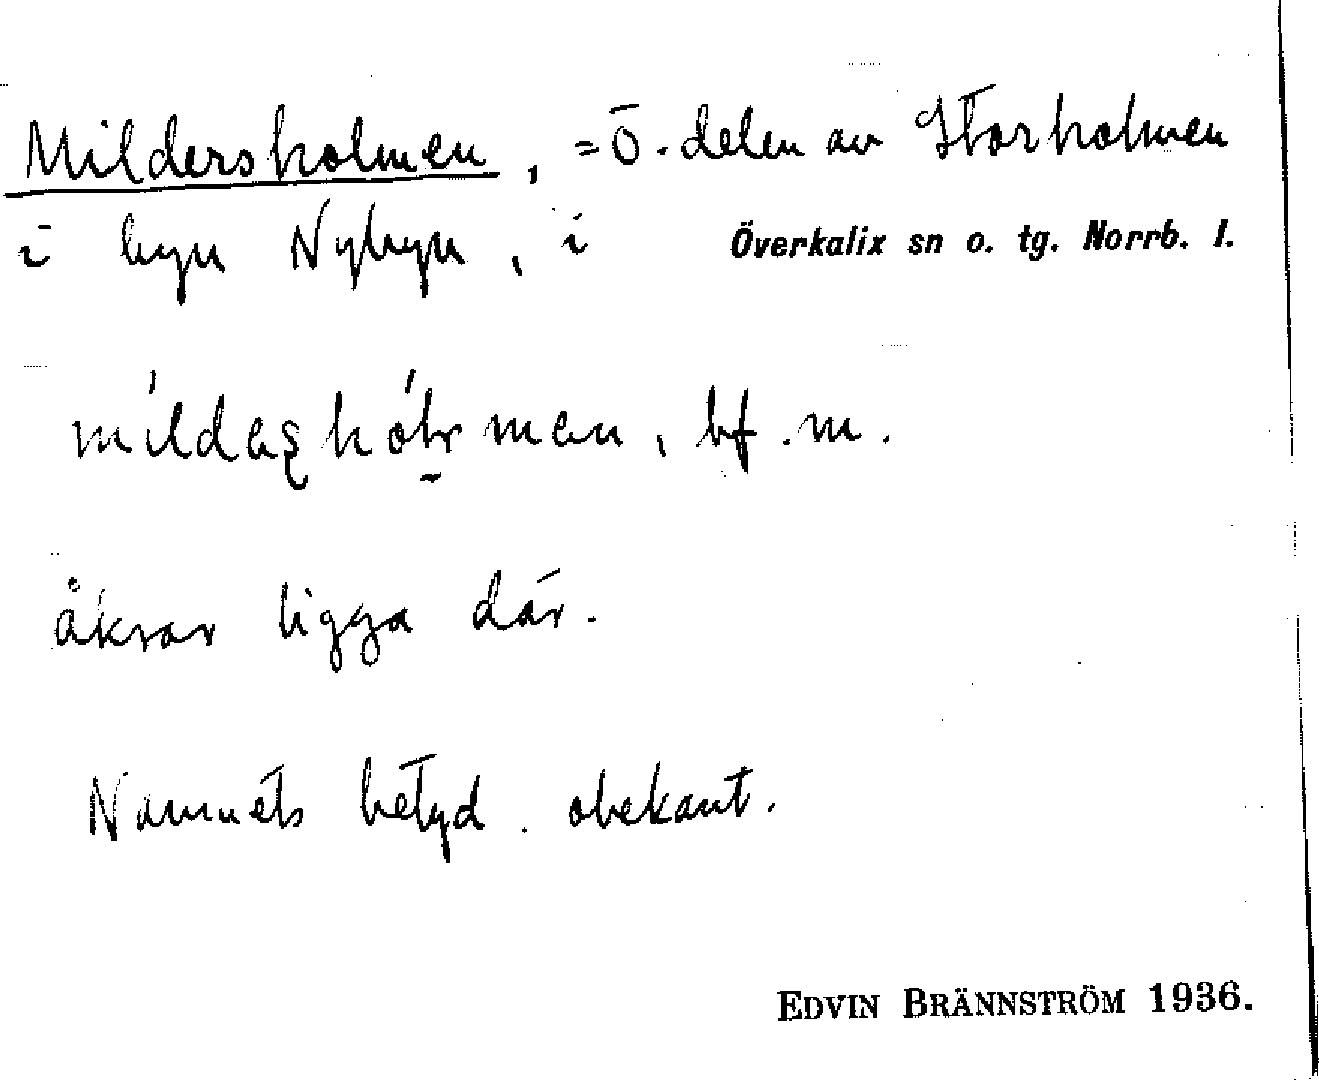 Mildersholmen, = Ö. delen av Storholmen
i byn Nybyn, i Överkalix sn o. tg. Norrb. l.
bf. m.
åkrar ligga där.
Namnets betyd. obekant.
EDVIN BRÄNNSTRÖM 1936.